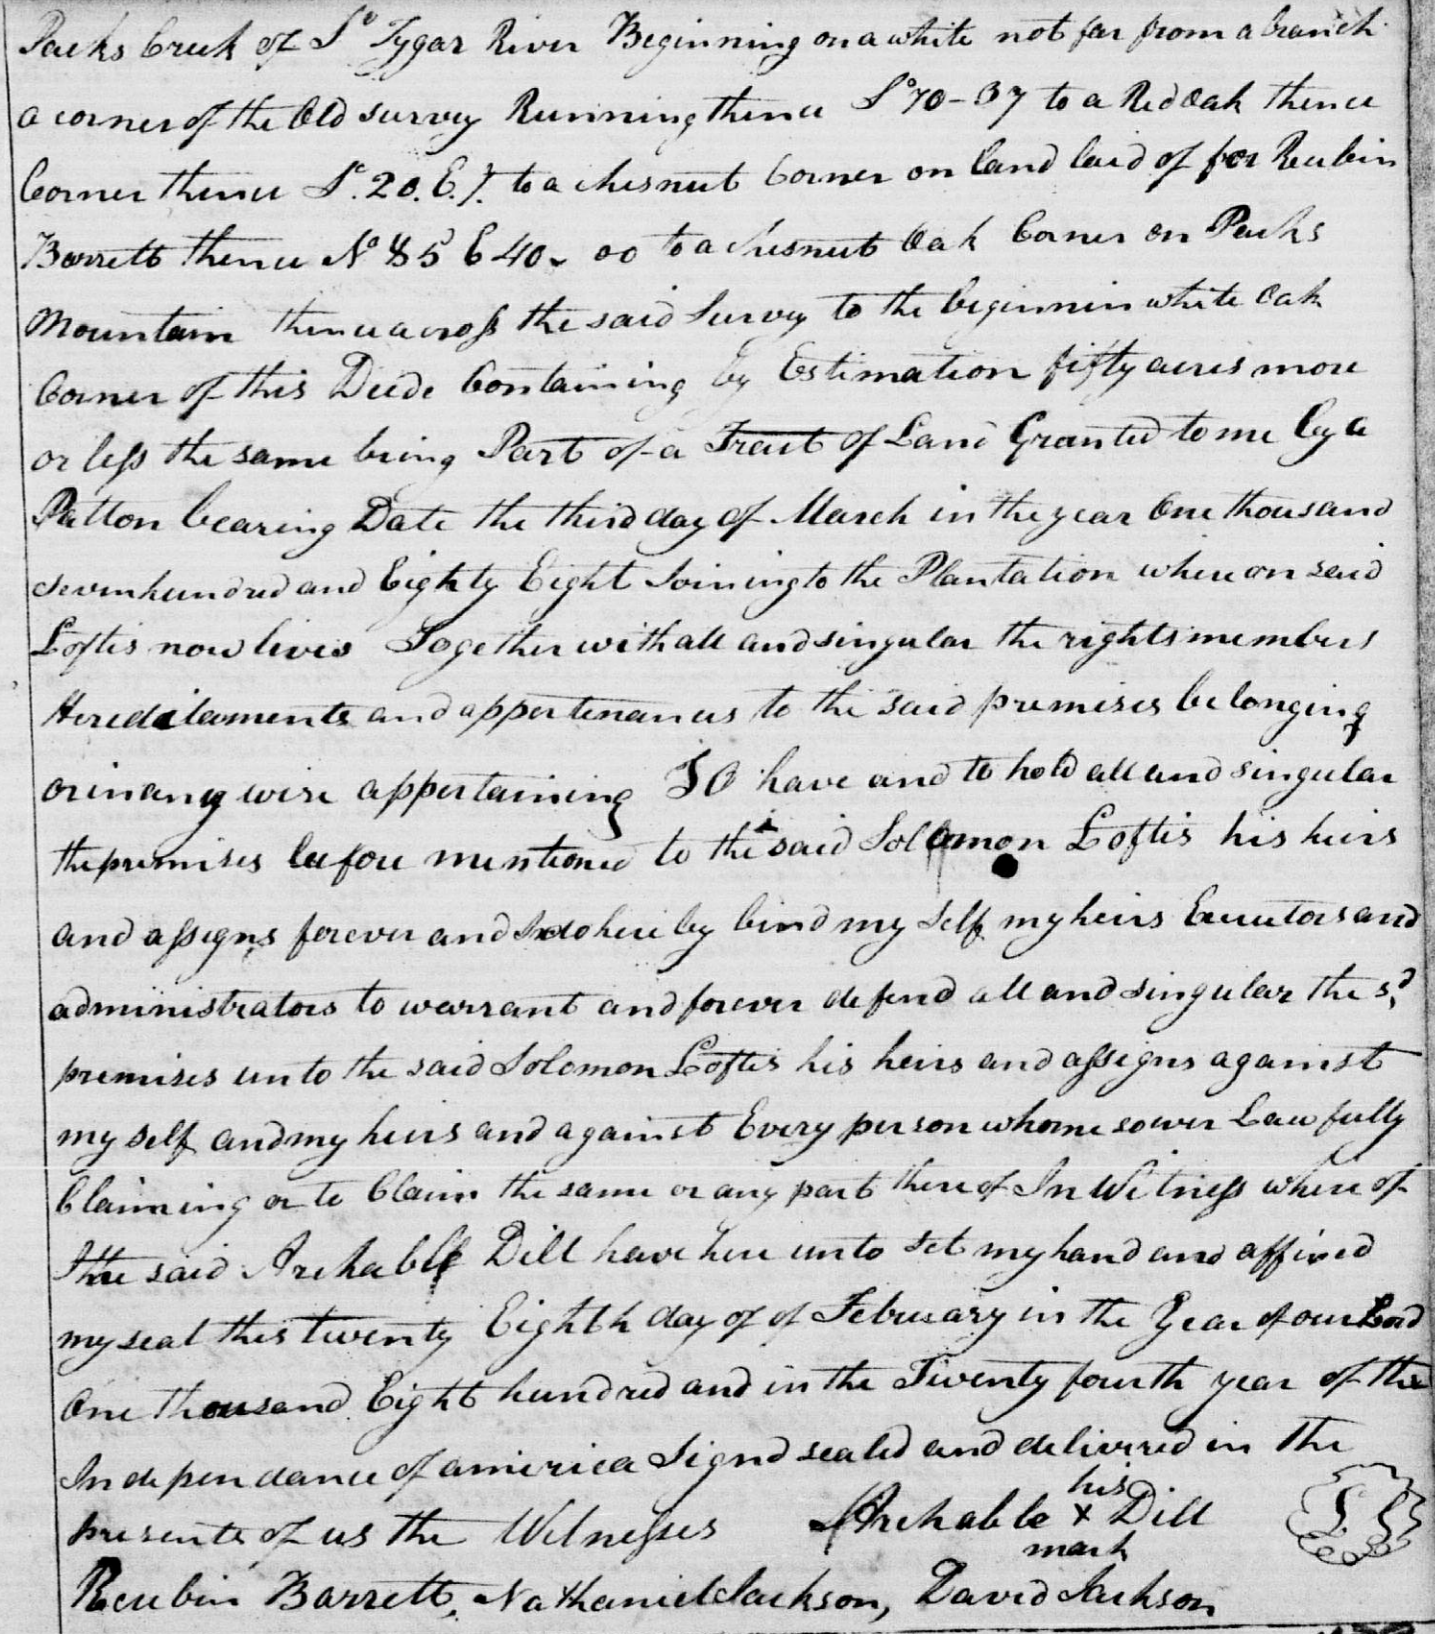 Packs Creek of So Tygar River Beginning on a white not far from a branch
a corner of the Old survey Running thence So 70 - 37 to a Red Oak thence
Corner thence So. 20. E. 7. to a chesnut Corner on land laid of for Reubin
Barrett thence No 85 E 40. 00 to a chesnut Oak Corner on Packs
Mountain thence across the said Survey to the beginnin white Oak
Corner of this Deede Containing by Estimation fifty acres more
or less the same being Part of a Tract of Land Granted to me by a
Patton bearing Date the third day of March in the year One thousand
seven hundred and Eighty Eight Joining to the Plantation where on said
Loftis now lives Together with all and singular the rights members
Hereditaments and appertenances to the said premises belonging
or in any wise appertaining TO have and to hold all and singular
the premises before mentioned to the said Solomon Loftis his heirs
and assigns forever and I do here by bind my self my heirs Executors and
administrators to warrant and forever defend all and singular the sd,
premises unto the said Solomon Loftis his heirs and assigns against
my self and my heirs and against Every person whome sower Lawfully
Claiming or to Claim the same or any part there of In Witness where of
I the said Archable Dill have here unto set my hand and affixed
my seal this twenty Eighth day of of February in the Year of our Lord
One thousand Eight hundred and in the Twenty fourth year of the
Independance of america Signd sealed and deliverred in the
presente of us the Witnesses Archable his x mark Dill L S
Reubin Barrett, Nathaniel Jackson, David Jackson